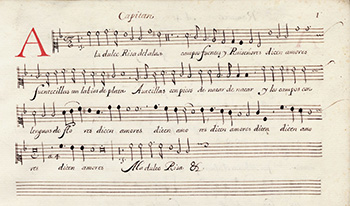 Capitan. 1
A
la dulce Risa del alua campos fuentes y Ruiseñores dicen amores
fuentecillas con labios de plata Auecillas con picos de nacar de nacar y los campos con
lenguas de flo res dicen amores dicen amo res dicen amores dicen dicen amo
res dicen amores A la dulce Risa. &